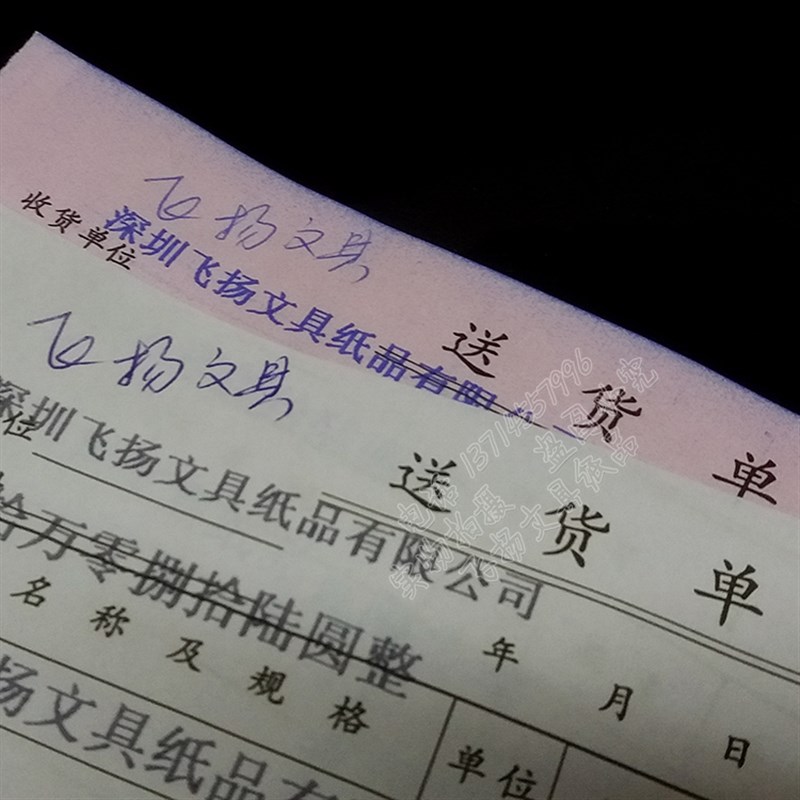 飞扬文具
收货单位
深圳飞扬文具纸品有限
送货单
飞扬文具
位
深圳飞扬文具纸品有限公司
送货单
拾万零捌拾陆圆整
年 月 日
名称及规格
单位
扬文具纸品有
电话 13714557996
实物拍摄 盗图必究
飞扬文具纸品